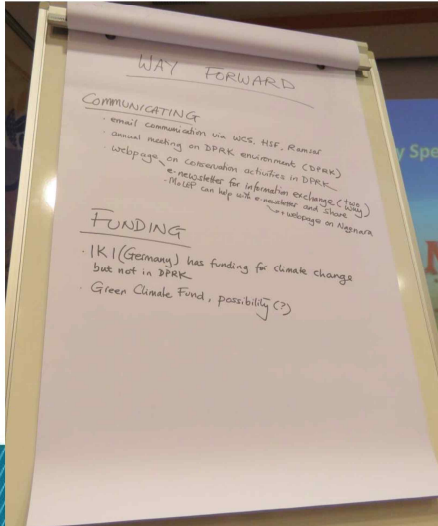 WAY FORWARD
COMMUNICATING
· email communication via WCS, HSF, Ramsar
· annual meeting on DPRK environment (DPRK)
· webpage on conservation activities in DPRK
e-newsletter for information exchange (two way)
· MoLEP can help with e-newsletter and share
+ webpage on Naenara
FUNDING
· IKI (Germany) has funding for climate change
but not in DPRK
· Green Climate Fund, possibility (?)
y Spe